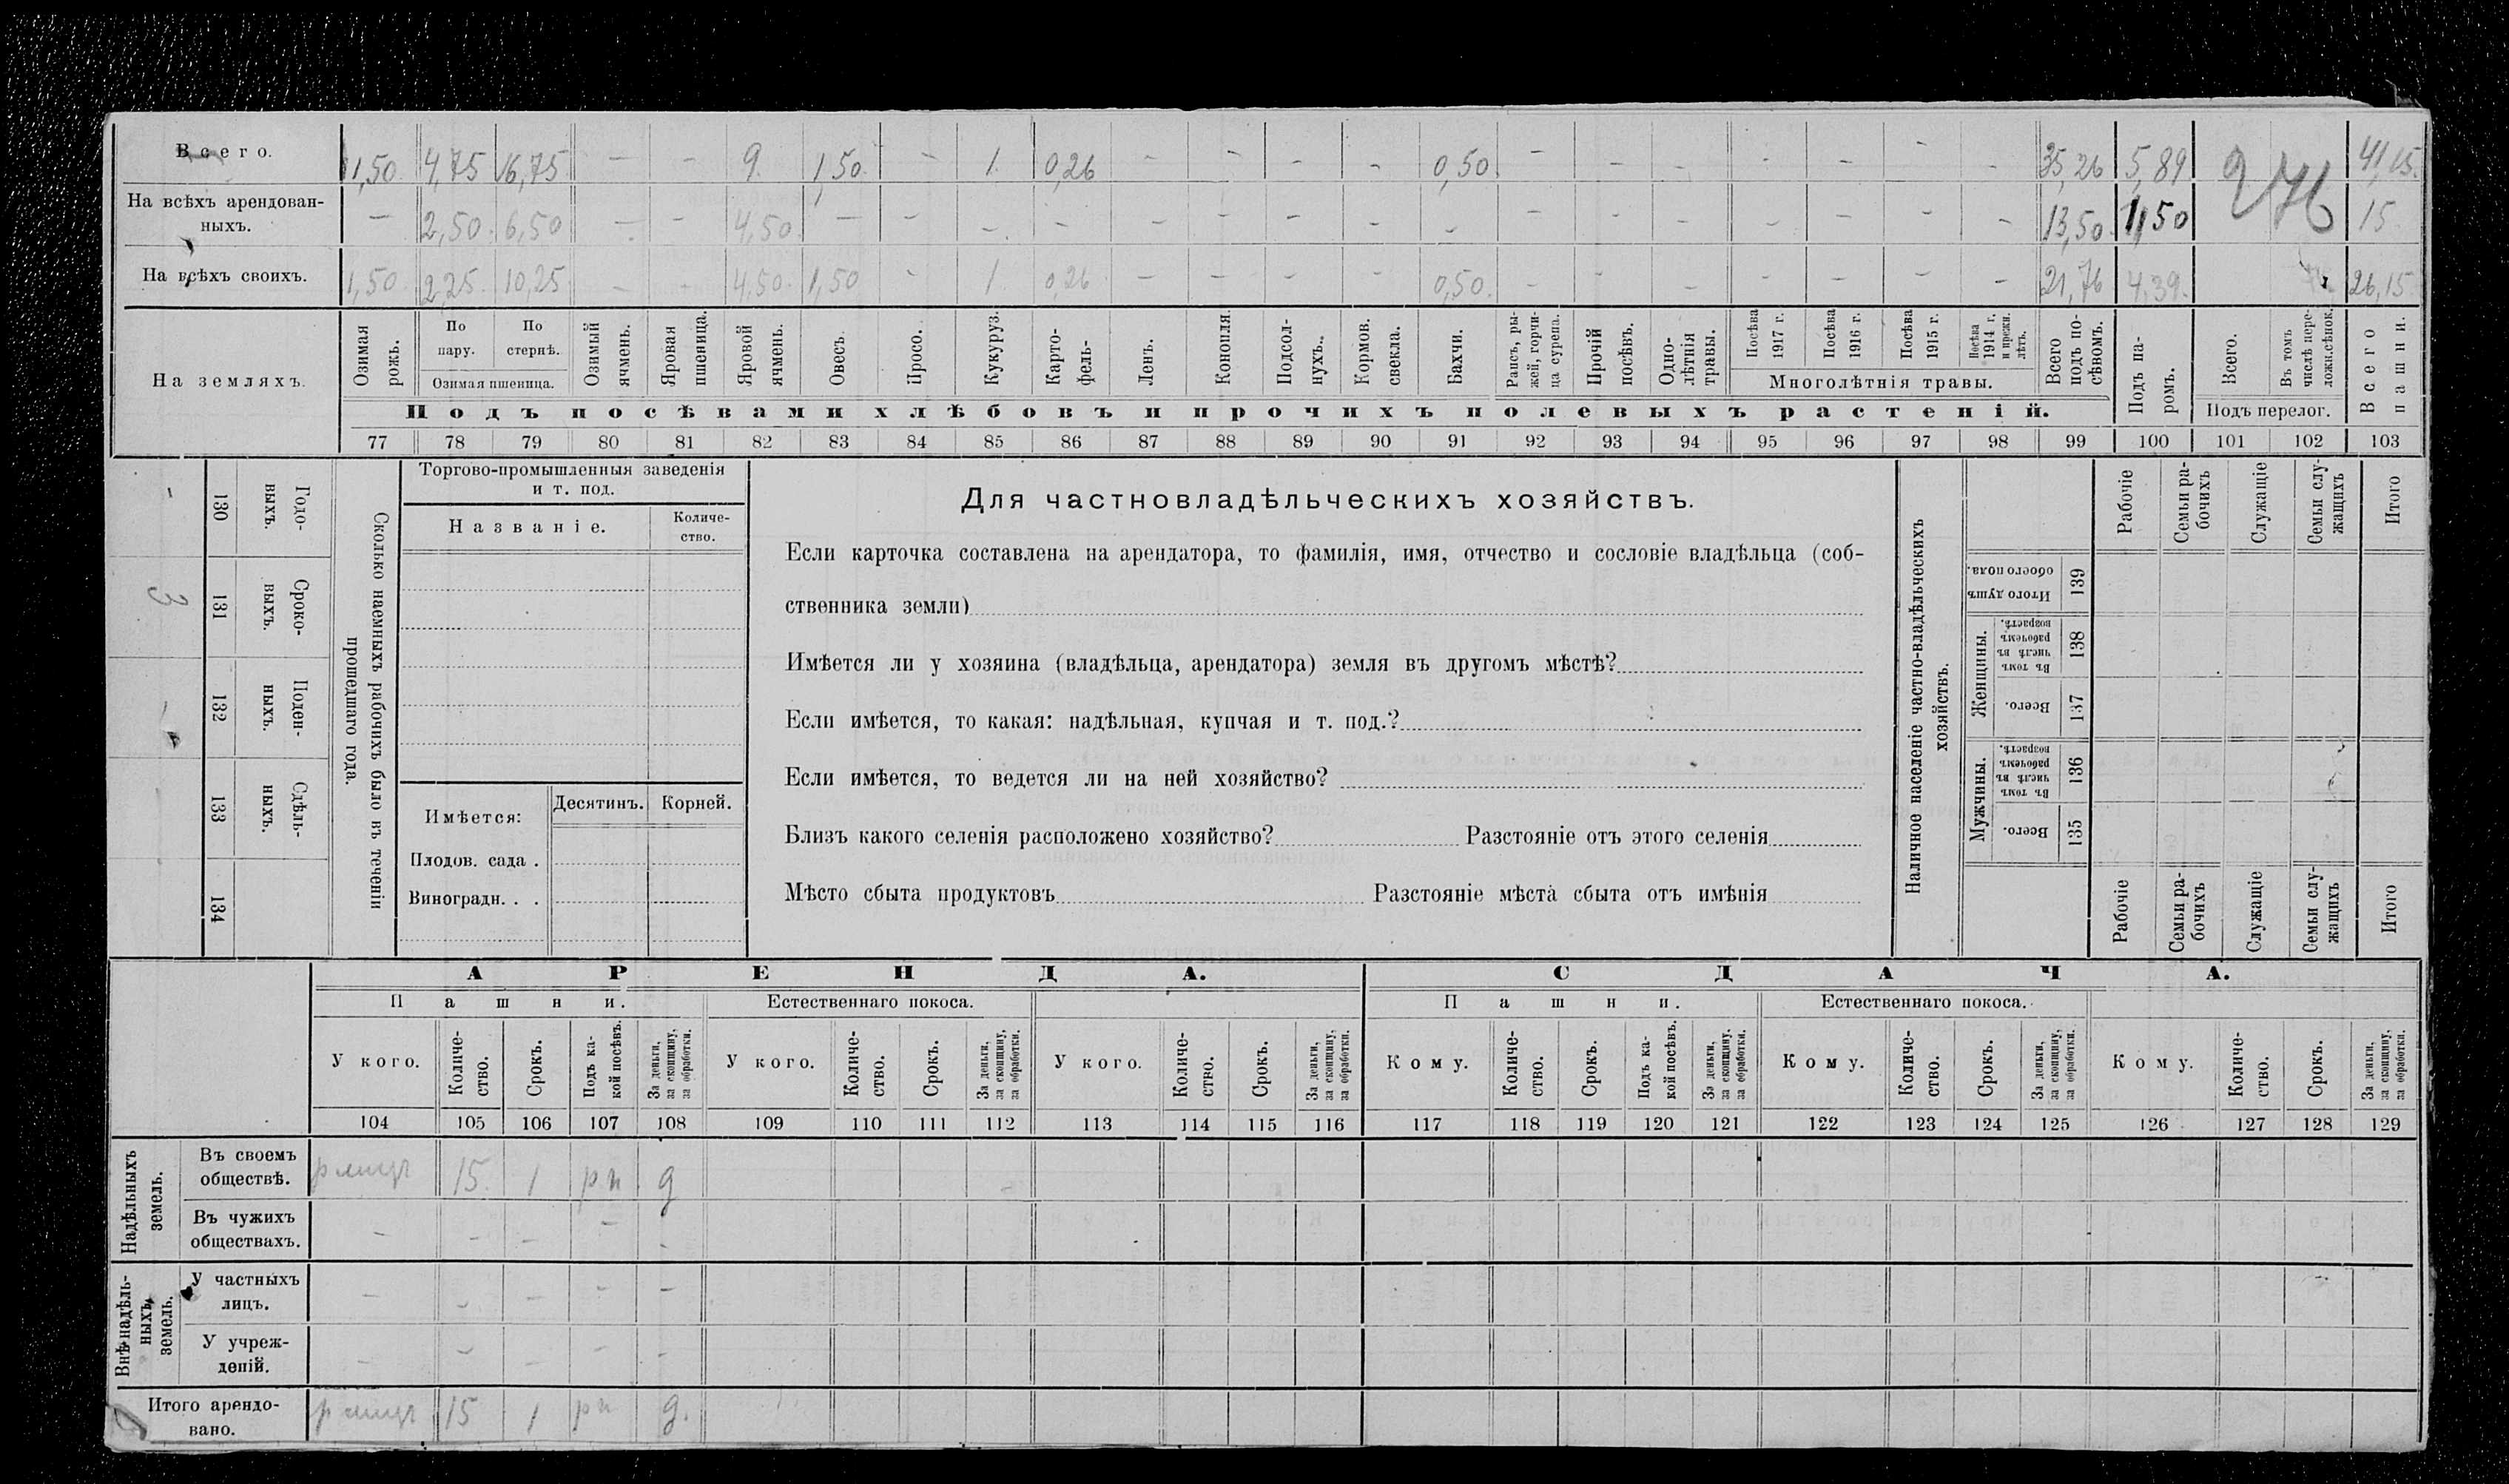 Всего. 1,50 4,75 16,75 — — 9. 1,50 — 1. 0,26 — — — — 0,50 — — — — — — — 35,26 5,89 276 41,15.
На всѣхъ арендован-
ныхъ. — 2,50 6,50 — — 4,50 — — — — — — — — — — — — — — — — 13,50 1,50 15
На всѣхъ своихъ. 1,50 2,25 10,25 — — 4,50 1,50 — 1 0,26 — — — — 0,50. — — — — — — — 21,76 4,39. 26,15
На земляхъ.
Озимая рожь.
По пару.
По стернѣ.
Озимая пшеница.
Озимый ячмень.
Яровая пшеница.
Яровой ячмень.
Овесъ.
Просо.
Кукуруз.
Карто-
фель-
Ленъ.
Конопля.
Подсол-
нухъ.
Кормов. свекла.
Бахчи.
Рапсъ, ры-
жей, горчи-
ца сурепа.
Прочій посѣвъ.
Одно-
лѣтнія
травы.
Посѣва 1917 г.
Посѣва 1916 г.
Посѣва 1915 г.
Посѣва 1914 г. и прежн. лѣтъ.
Многолѣтнія травы.
Всего подъ по-
сѣвомъ.
Подъ па-
ромъ.
Всего.
Въ томъ числѣ пере-
ложн. сѣнок.
Подъ перелог.
Всего пашни.
Подъ посѣвами хлѣбовъ и прочихъ полевыхъ растеній.
77 78 79 80 81 82 83 84 85 86 87 88 89 90 91 92 93 94 95 96 97 98 99 100 101 102 103
Сколько наемныхъ рабочихъ было въ теченіи
прошедшаго года.
Годо-
выхъ. 130 —
Сроко-
выхъ. 131 3
Поден-
ныхъ. 132 —
Сдѣль-
ныхъ. 133
134
Торгово-промышленныя заведенія
и т. под.
Названіе.
Количе-
ство.
Имѣется: Десятинъ. Корней.
Плодов. сада .
Виноградн. . .
Для частновладѣльческихъ хозяйствъ.
Если карточка составлена на арендатора, то фамилія, имя, отчество и сословіе владѣльца (соб-
ственника земли)
Имѣется ли у хозяина (владѣльца, арендатора) земля въ другомъ мѣстѣ?
Если имѣется, то какая: надѣльная, купчая и т. под.?
Если имѣется, то ведется ли на ней хозяйство?
Близъ какого селенія расположено хозяйство? Разстояніе отъ этого селенія
Мѣсто сбыта продуктовъ Разстояніе мѣста сбыта отъ имѣнія
Наличное населеніе частно-владѣльческихъ
хозяйствъ.
Рабочіе
Семьи ра-
бочихъ
Служащіе
Семьи слу-
жащихъ
Итого
Итого душъ
обоего пола. 139
Женщины.
Въ томъ числѣ въ рабочемъ возрастѣ. 138
Всего. 137
Мужчины.
Въ томъ числѣ въ рабочемъ возрастѣ. 136
Всего. 135
Рабочіе
Семьи ра-
бочихъ
Служащіе
Семьи слу-
жащихъ
Итого
АРЕНДА. СДАЧА.
Пашни. Естественнаго покоса. Пашни. Естественнаго покоса.
У кого.
Количе-
ство.
Срокъ.
Подъ ка-
кой посѣвъ.
За деньги,
за скопщину,
за обработки.
У кого.
Количе-
ство.
Срокъ.
За деньги,
за скопщину,
за обработки.
У кого.
Количе-
ство.
Срокъ.
За деньги,
за скопщину,
за обработки.
Кому.
Количе-
ство.
Срокъ.
Подъ ка-
кой посѣвъ.
За деньги,
за скопщину,
за обработки.
Кому.
Количе-
ство.
Срокъ.
За деньги,
за скопщину,
за обработки.
Кому.
Количе-
ство.
Срокъ.
За деньги,
за скопщину,
за обработки.
104 105 106 107 108 109 110 111 112 113 114 115 116 117 118 119 120 121 122 123 124 125 126 127 128 129
Надѣльныхъ
земель.
Въ своемъ
обществѣ. 15. 1 рп д
Въ чужихъ
обществахъ. — — — — —
Внѣ надѣль-
ныхъ
земель.
У частныхъ
лицъ. — — — — —
У учреж-
деній. — — — — —
Итого арендо-
вано. 15 1 рп д.